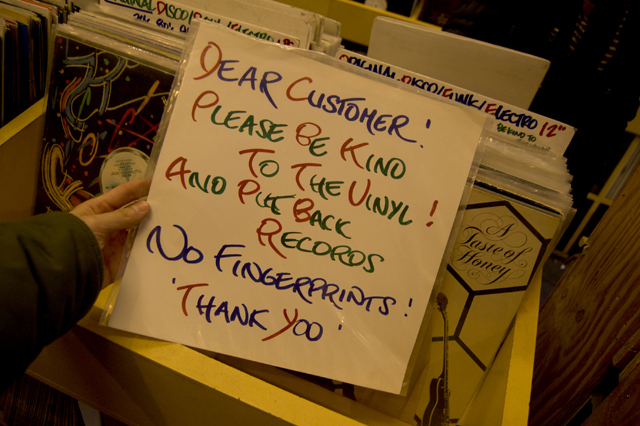 ORIGINAL DISCO/FUNK/ELECTRO
ORIGINAL DISCO/FUNK/ELECTRO 12"
BE KIND TO
DEAR CUSTOMER!
PLEASE BE KIND
TO THE VINYL!
AND PUT BACK
RECORDS
NO FINGERPRINTS!
'THANK YOO'
A
Taste of
Honey